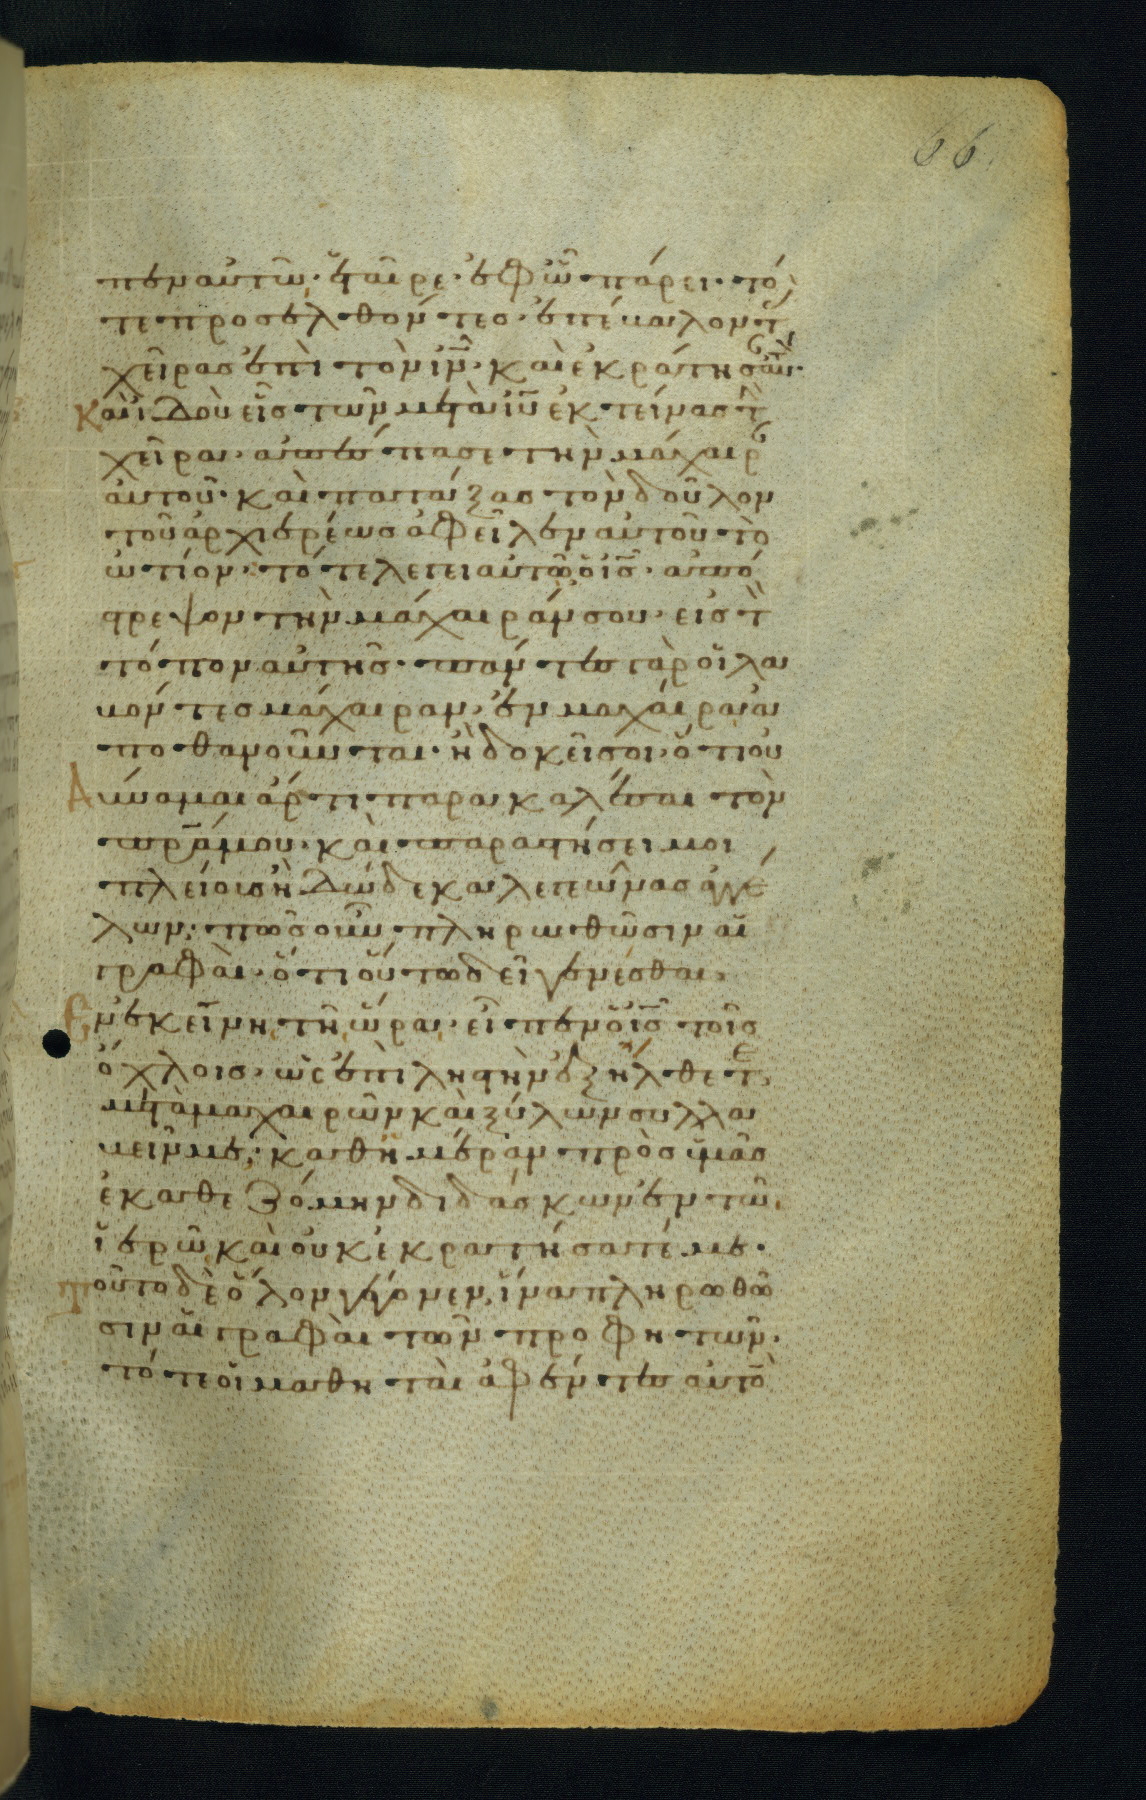 66
πεν αὐτῶ· ἑταῖρε· ἐφ ὧ πάρει· τό
τε προσελθόντες· ἐπέβαλον τ(ὰς)
χεῖρας ἐπὶ τὸν ἰν̅· καὶ ἐκράτησαν αυτὸν·
Καὶ ἰδοὺ εἷς τῶν μετὰ ἰυ̅ ἐκτείνας τὴ(ν)
χεῖρα· ἀπέσπασε τὴν μάχαιρ(αν)
αὐτοῦ· καὶ πατάξας τὸν δοῦλον
τοῦ ἀρχιερέως ἀφεῖλεν αὐτοῦ τὸ
ὠτίον· τότε λέγει αὐτῶ ὁ ἰς̅· ἀπό
στρεψον τὴν μάχαιράν σου· εἰς τὸ(ν)
τόπον αὐτῆς· πάντες γὰρ οἱ λα
βόντες μάχαιραν· ἐν μαχαίρα ἀ
ποθανοῦνται· ἢ δοκεῖ σοι· ὅτι οὐ
Δύναμαι ἄρτι παρακαλέσαι τὸν
πρ̅α μου· καὶ παραστήσει μοι
πλείους ἢ δώδεκα λεγεῶνας ἀγγέ
λων· πῶς οὖν πληρωθῶσιν αἱ
γραφαὶ· ὅτι οὕτω δεῖ γενέσθαι·
Ἐν ἐκείνη τῆ ὥρα· εἶπεν ὁ ἰς̅ τοῖς
ὄχλοις· ὡς ἐπὶ ληστὴν ἐξήλθετε
μετὰ μαχαιρῶν καὶ ξύλων συλλα
βεῖν με· καθημέραν πρὸς ὑμᾶς
ἐκαθεζόμην διδάσκων ἐν τῶ
ἱερῶ καὶ οὐκ ἐκρατήσατέ με·
Τοῦτο δὲ ὅλον γέγονεν, ἵνα πληρωθῶ
σιν αἱ γραφαὶ τῶν προφητῶν·
τότε οἱ μαθηταὶ ἀφέντες αὐτὸ(ν)